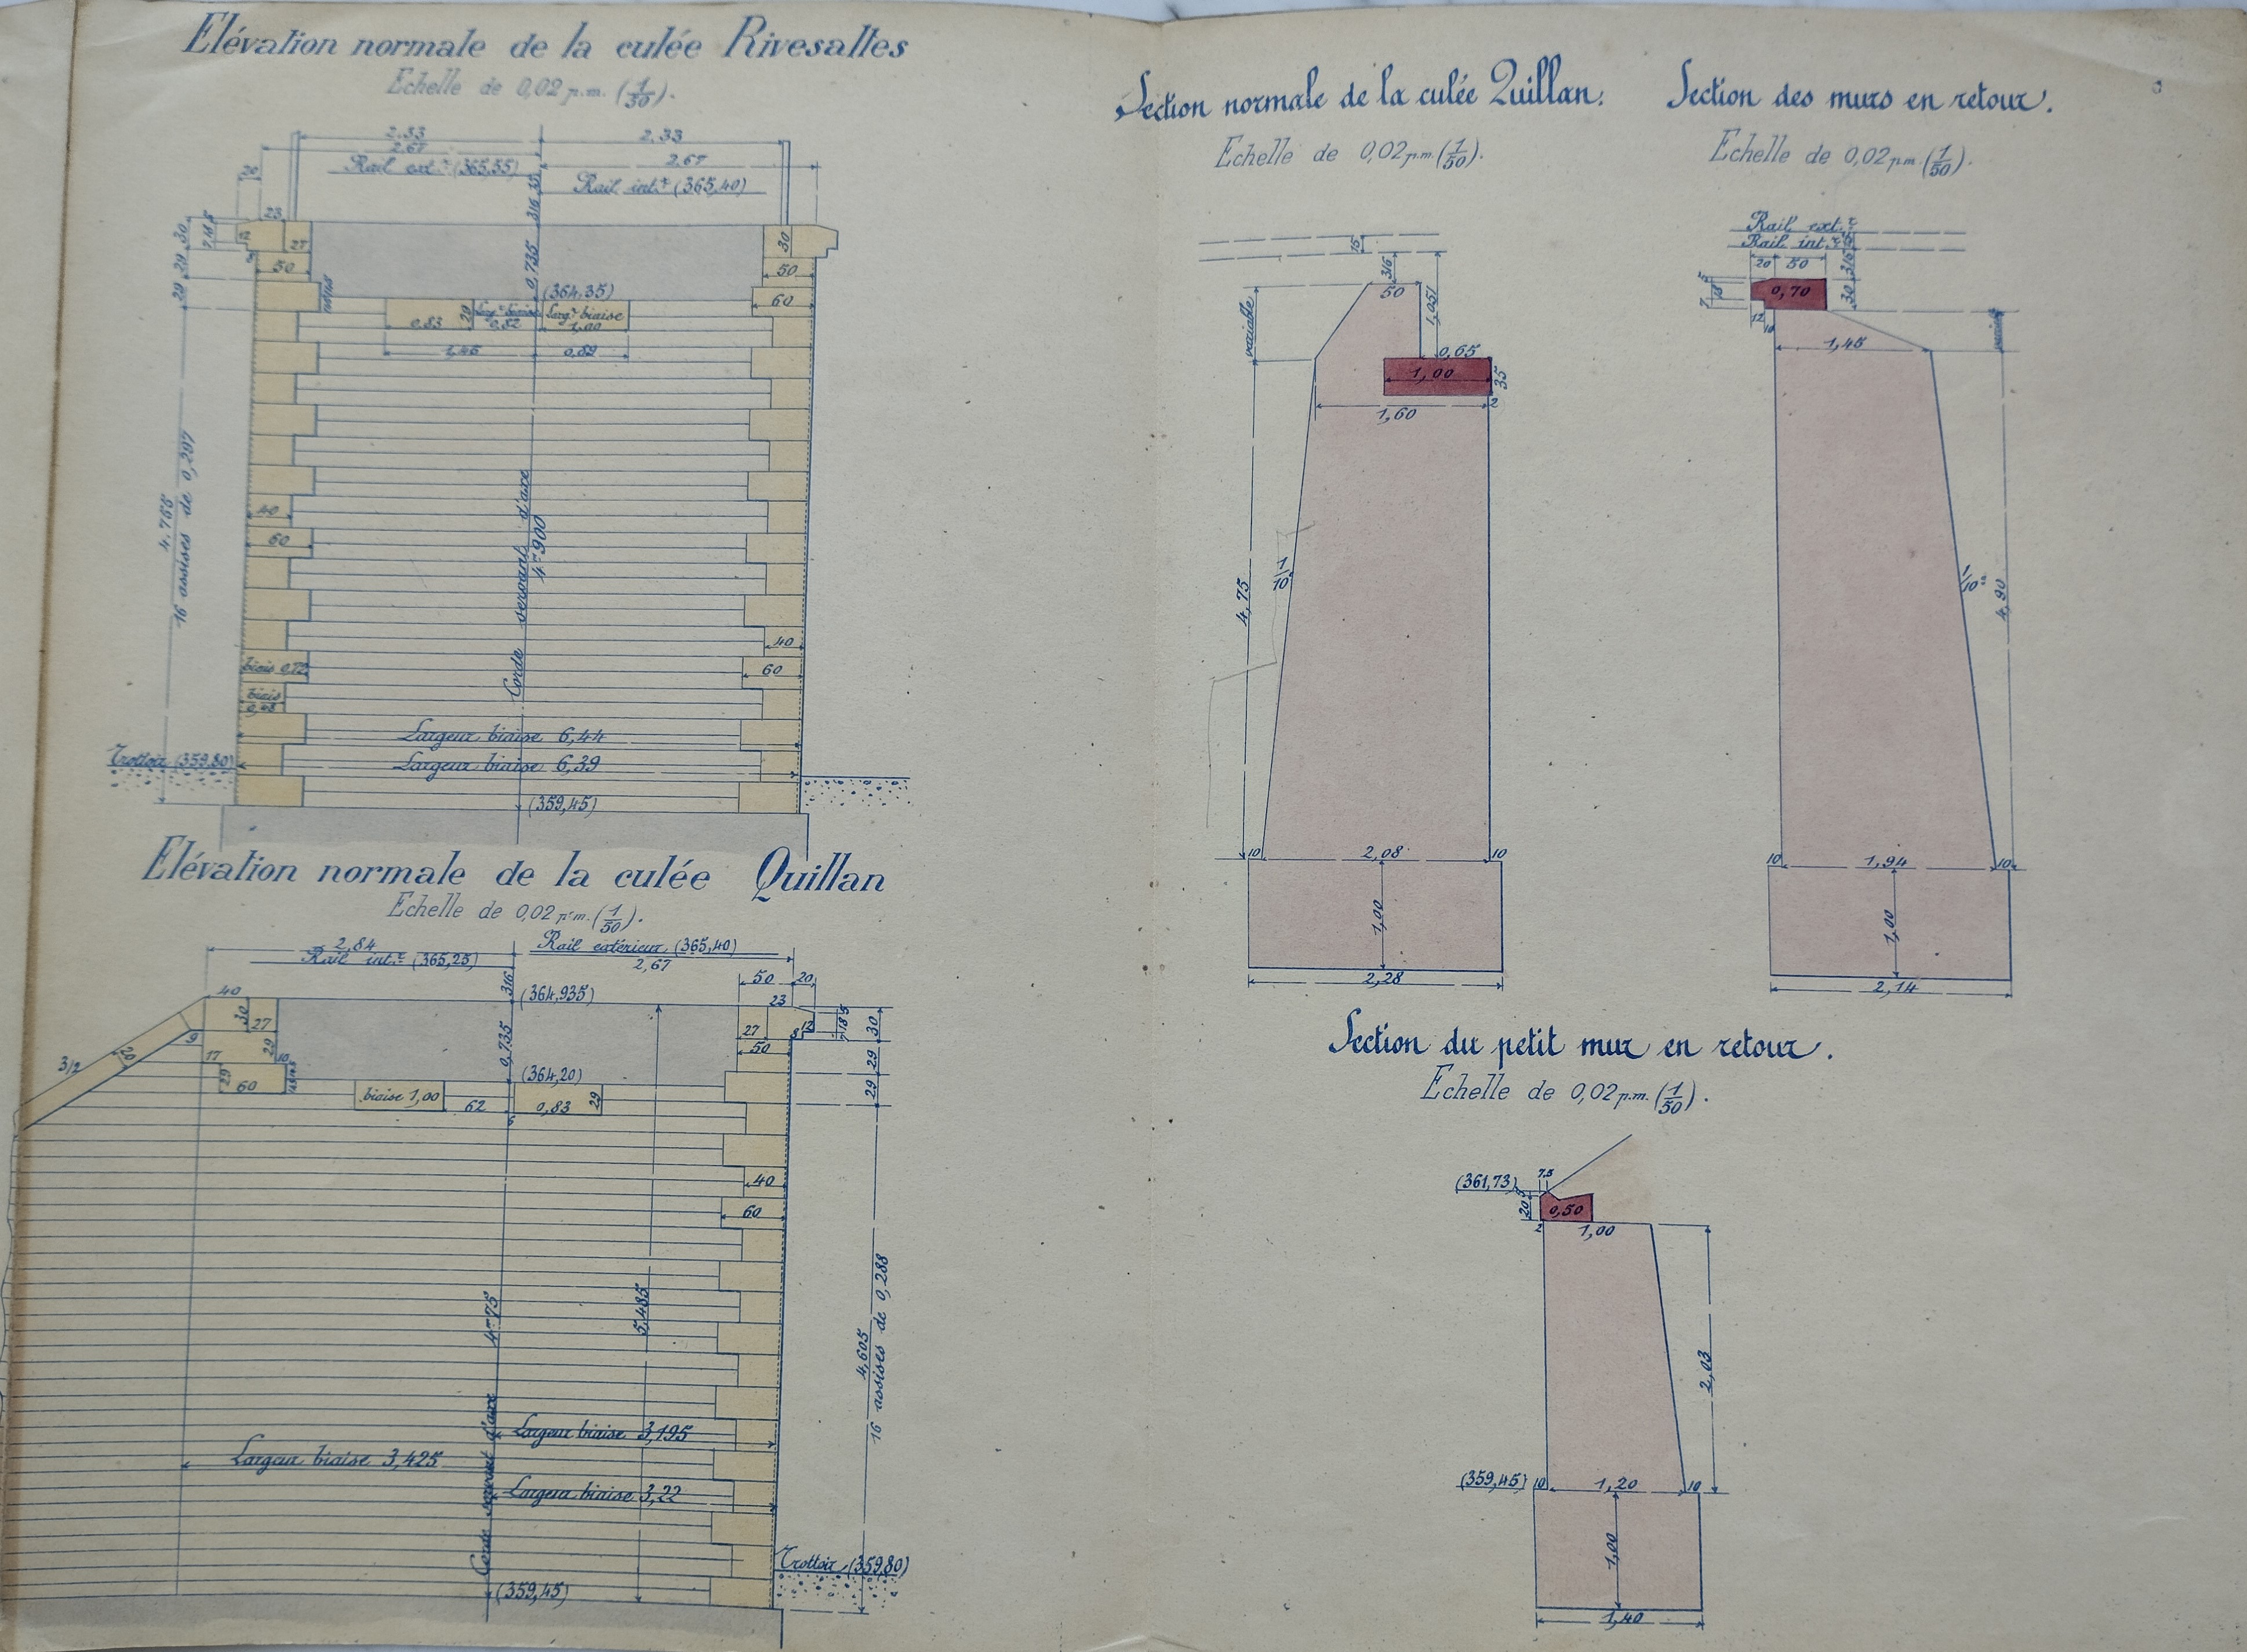 Elévation normale de la culée Rivesaltes
Echelle de 0,02 p.m. (1/50).
2,33
2,33
2,67
2,67
Rail ext.r (365,55)
Rail int.r (365,40)
20
23
316
30
12
27
30
29
50
0,735
50
29
(364,35)
60
0,83
29
0,82
Larg.r biaise
1,00
1,46
0,82
4,765
16 assises de 0,297
40
60
Corde servant d'axe
4m900
40
60
biais 0,72
biais
0,48
Largeur biaise 6,44
Largeur biaise 6,39
Trottoir (359,80)
(359,45)
Elévation normale de la culée Quillan
Echelle de 0,02 p.m. (1/50).
2,84
Rail int.r (365,25)
Rail extérieur (365,40)
2,67
316
50
20
40
(364,935)
23
30
27
27
12
30
9
29
0,735
50
3/2
20
17
10
29
(364,20)
29
60
29
biaise 1,00
62
0,83
29
40
60
4m75
5,485
4,605
16 assises de 0,288
Largeur biaise 3,195
Largeur biaise 3,425
Corde servant d'axe
Largeur biaise 3,22
Trottoir (359,80)
(359,45)
Section normale de la culée Quillan.
Echelle de 0,02 p.m. (1/50).
15
316
50
variable
1,051
0,65
1,00
35
1,60
2
4,75
1/10e
10
2,08
10
1,00
2,28
Section des murs en retour.
Echelle de 0,02 p.m. (1/50).
Rail ext.r
Rail int.r
20
50
316
0,70
30
12
1,45
1/10e
4,90
10
1,94
10
1,00
2,14
Section du petit mur en retour.
Echelle de 0,02 p.m. (1/50).
(361,73)
7,5
20
0,50
2
1,00
2,03
(359,45)
10
1,20
10
1,00
1,40